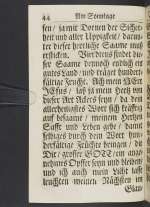 44 Am Sonntage
sen / samt Dornen der Sicher-
heit und aller Uppigkeit / darun-
ter dieser herrliche Saame muß
ersticken. Vierdtens findet die-
ser Saame dennoch endlich ein
gutes Land / und träget hundert-
fältige Frucht. Ach mein HErr
JEsus / laß ja mein Hertz von
dieser Art Ackers seyn / da dein
allerheiligstes Wort sich kräfftig
auf besaame / meinem Hertzen
Safft und Leben gebe / damit
selbiges durch dein Wort hun-
dertfältige Früchte bringen / die
Dir / grosser GOTT / ein ange-
nehmes Opffer seyn und bleiben
und ich auch mein Licht lasse
leuchten meinen Nächsten im